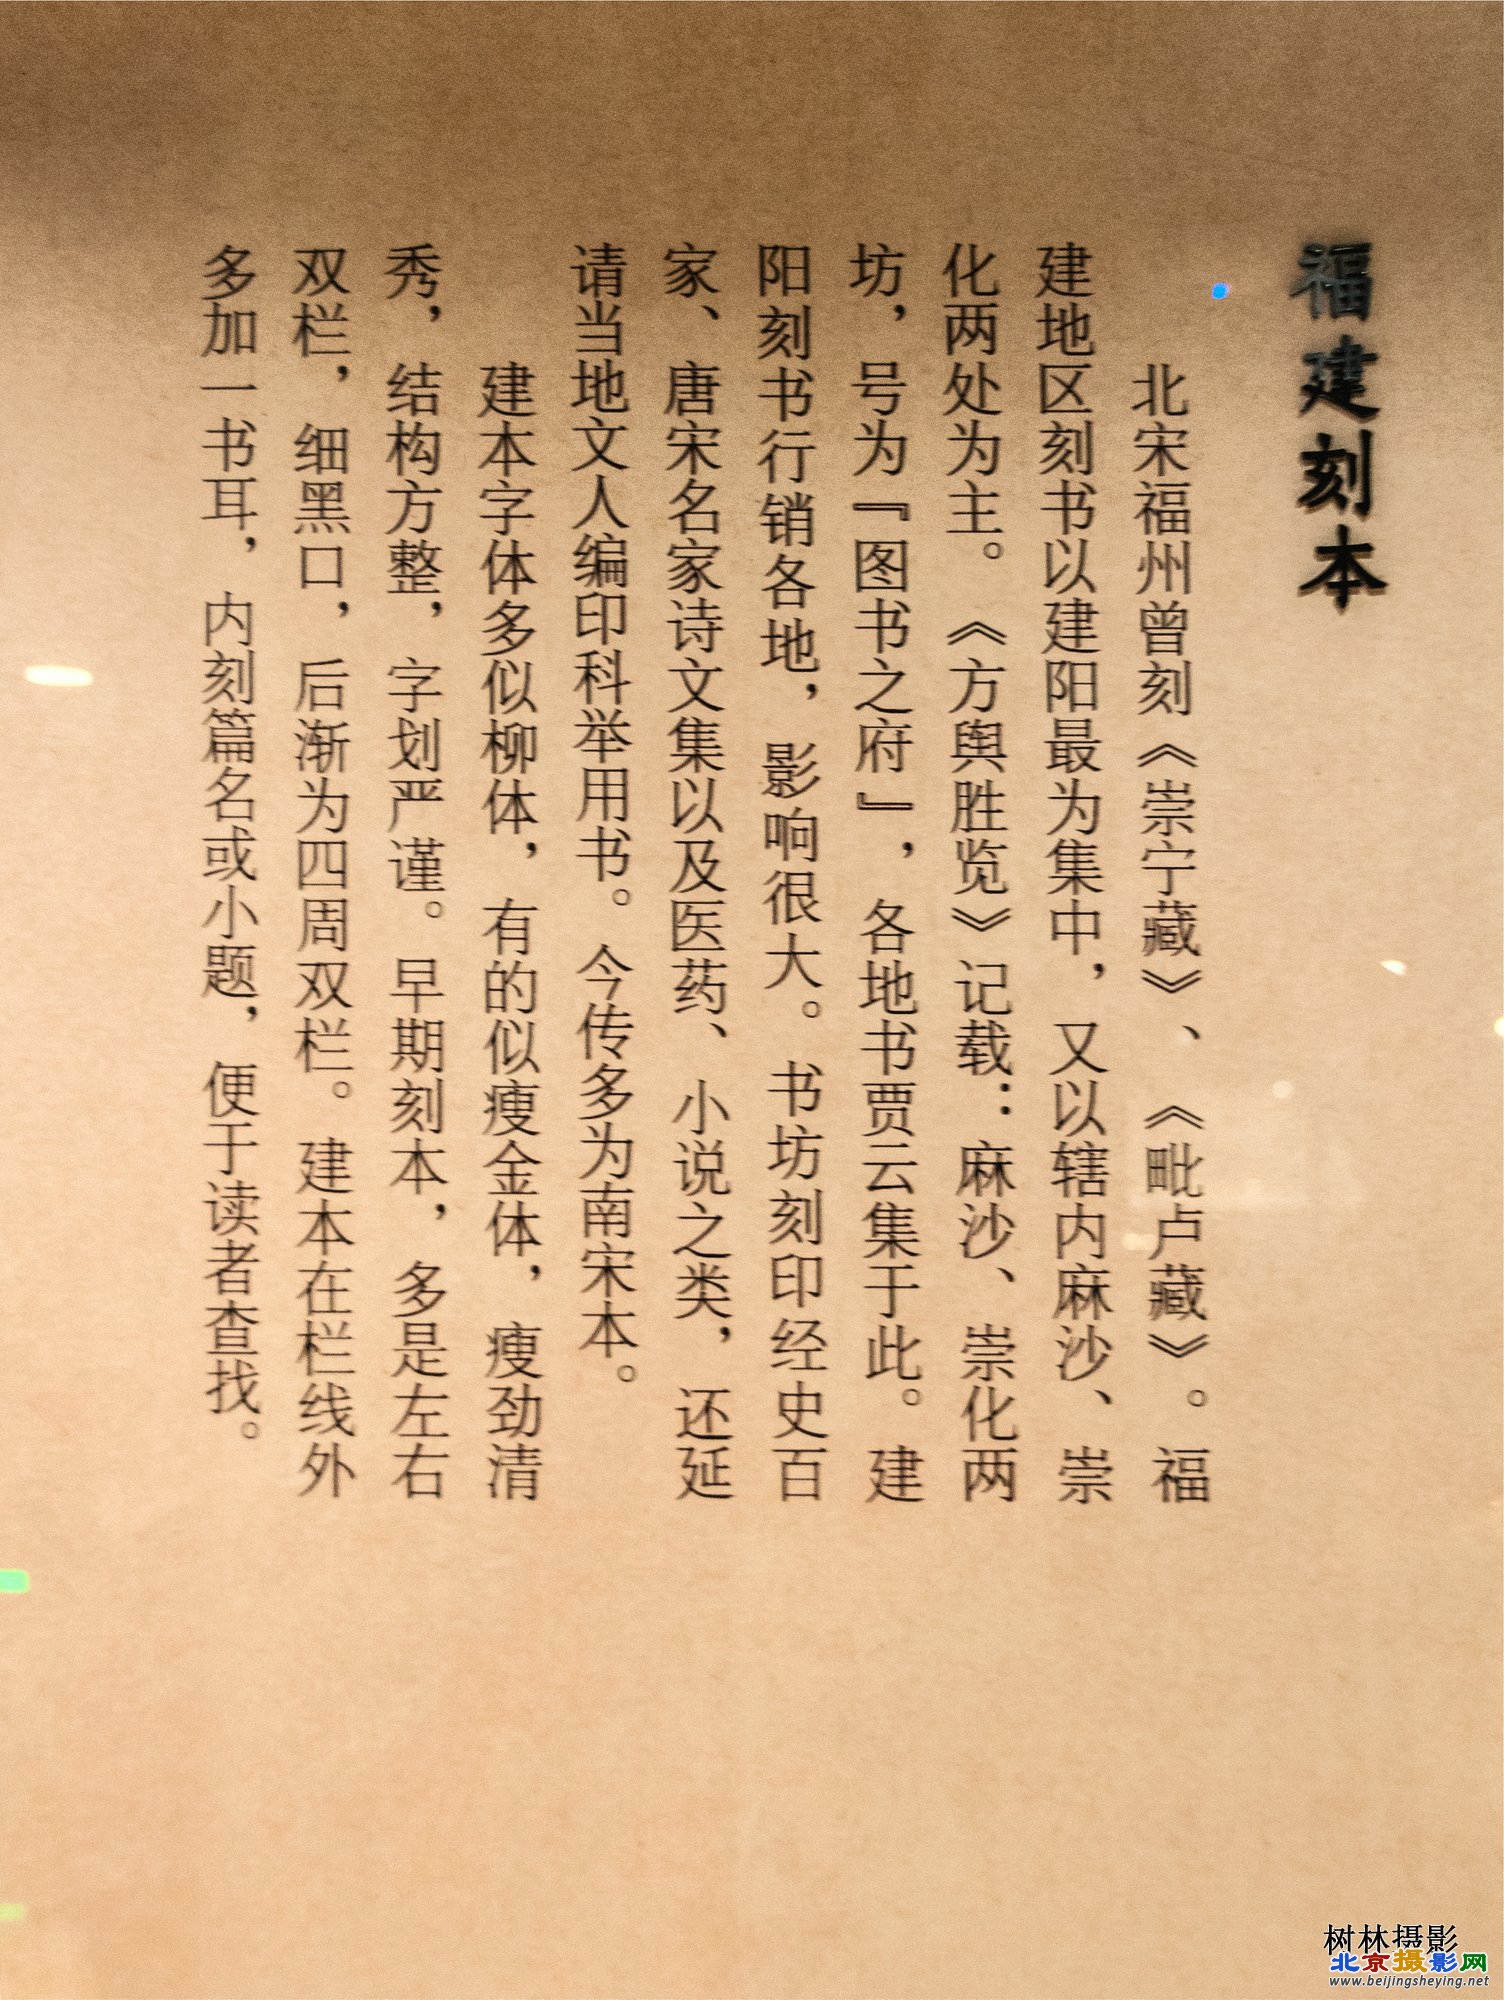 福建刻本
北宋福州曾刻《崇宁藏》、《毗卢藏》。福
建地区刻书以建阳最为集中，又以辖内麻沙、崇
化两处为主。《方舆胜览》记载：麻沙、崇化两
坊，号为『图书之府』，各地书贾云集于此。建
阳刻书行销各地，影响很大。书坊刻印经史百
家、唐宋名家诗文集以及医药、小说之类，还延
请当地文人编印科举用书。今传多为南宋本。
建本字体多似柳体，有的似瘦金体，瘦劲清
秀，结构方整，字划严谨。早期刻本，多是左右
双栏，细黑口，后渐为四周双栏。建本在栏线外
多加一书耳，内刻篇名或小题，便于读者查找。
树林摄影
北京摄影网
www.beijingsheying.net